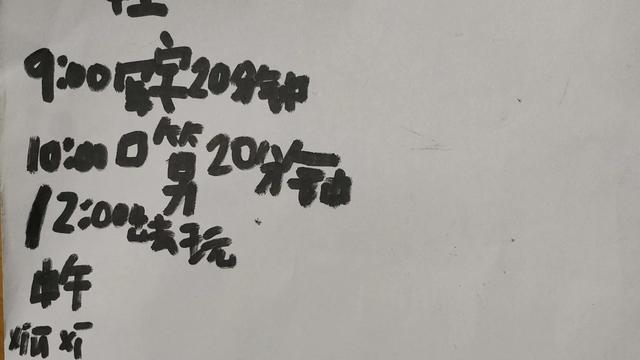 9:00写字20分钟
10:00口算20分钟
12:00出去玩
中午
xiū xī